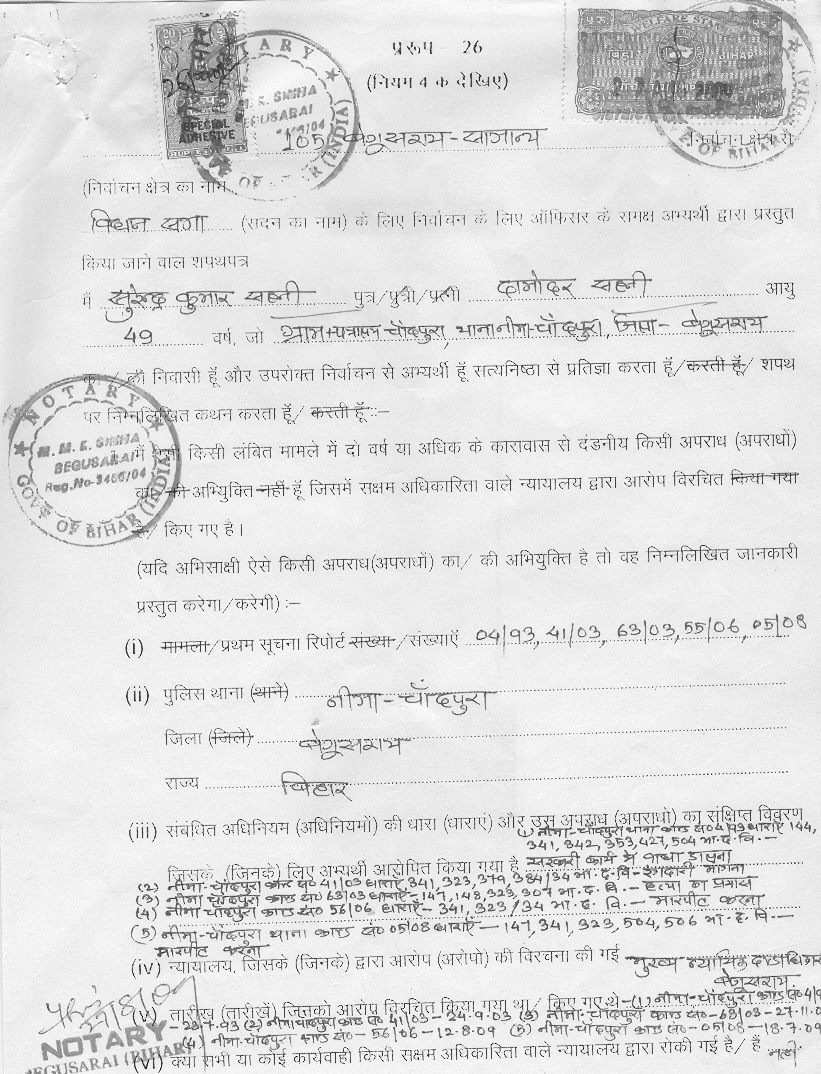 प्ररूप - 26
(नियम 4 क देखिए)
NOTARY
M. M. K. SINHA
BEGUSARAI
SPECIAL
ADHESIVE
WELFARE STAMP
BIHAR
OF BIHAR (INDIA)
105 बेगूसराय-सामान्य निर्वाचन क्षेत्र से
(निर्वाचन क्षेत्र का नाम
विधान सभा (सदन का नाम) के लिए निर्वाचन के लिए ऑफिसर के समक्ष अभ्यर्थी द्वारा प्रस्तुत
किया जाने वाल शपथपत्र
मैं सुरेन्द्र कुमार सहनी पुत्र/पुत्री/पत्नी दामोदर सहनी आयु
49 वर्ष, जो ग्राम+पंचायत-चाँदपुरा, थाना नीमा-चाँदपुरा, जिला- बेगूसराय
का/ की निवासी हूँ और उपरोक्त निर्वाचन से अभ्यर्थी हूँ सत्यनिष्ठा से प्रतिज्ञा करता हूँ/ करती हूँ/ शपथ
पर निम्नलिखित कथन करता हूँ/ करती हूँ :-
NOTARY
M. M. K. SINHA
BEGUSARAI
Reg.No-3466/04
GOVT OF BIHAR (INDIA)
मैं किसी लंबित मामले में दो वर्ष या अधिक के कारावास से दंडनीय किसी अपराध (अपराधों)
का/ की अभियुक्ति नहीं हूँ जिसमें सक्षम अधिकारिता वाले न्यायालय द्वारा आरोप विरचित किया गया
है/ किए गए है।
(यदि अभिसाक्षी ऐसे किसी अपराध(अपराधों) का/ की अभियुक्ति है तो वह निम्नलिखित जानकारी
प्रस्तुत करेगा/करेगी) :-
(i) मामला/प्रथम सूचना रिपोर्ट संख्या/संख्याएँ 04/93, 41/03, 63/03, 55/06, 05/08
(ii) पुलिस थाना (थाने) नीमा-चाँदपुरा
जिला (जिले) बेगूसराय
राज्य बिहार
(iii) संबंधित अधिनियम (अधिनियमों) की धारा (धाराएं) और उस अपराध (अपराधो) का संक्षिप्त विवरण
(1) नीमा-चाँदपुरा थाना काण्ड सं० 4/93 धाराएँ 144,
341, 342, 353, 427, 504 भा. द. वि. -
जिसके (जिनके) लिए अभ्यर्थी आरोपित किया गया है सरकारी कार्य में बाधा डालना
(2) नीमा-चाँदपुरा काण्ड सं० 41/03 धाराएँ, 341, 323, 379, 384/34 भा. द. वि- रंगदारी मांगना
(3) नीमा-चाँदपुरा काण्ड सं० 63/03 धाराएँ-147, 148, 323, 307 भा. द. वि. - हत्या का प्रयास
(4) नीमा चाँदपुरा काण्ड सं० 56/06 धाराएँ- 341, 323/34 भा. द. वि. - मारपीट करना
(5) नीमा-चाँदपुरा थाना काण्ड सं० 05/08 धाराएँ - 147, 341, 323, 504, 506 भा. द. वि. -
मारपीट करना
(iv) न्यायालय, जिसके (जिनके) द्वारा आरोप (अरोपो) की विरचना की गई मुख्य न्यायिक दण्डाधिकारी
बेगूसराय
(v) तारीख (तारीखें) जिनको आरोप विरचित किया गया था/ किए गए थे-(1) नीमा-चाँदपुरा काण्ड सं० 4/9
- 23-7-93 (2) नीमा चाँदपुरा काण्ड सं० 41/03 - 24.9.03 (3) नीमा-चाँदपुरा काण्ड सं०- 63/03-27-11-0
(4) नीमा-चाँदपुरा काण्ड सं०- 56/06 - 12.8.09 (5) नीमा-चाँदपुरा काण्ड सं०- 05/08 -18.7.09
NOTARY
BEGUSARAI (BIHAR)
(vi) क्या सभी या कोई कार्यवाही किसी सक्षम अधिकारिता वाले न्यायालय द्वारा रोकी गई है/ हैं नहीं